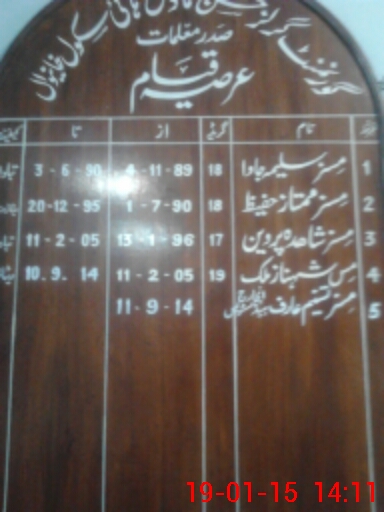 گورنمنٹ گرلز ماڈل ہائی سکول خانیوال
صدر معلمات
عرصہ قیام
نام گریڈ از تا
1 مسز سلیمہ جاوا 18 4-11-89 3-6-90
2 مسز ممتاز حفیظ 18 1-7-90 20-12-95
3 مسز شاھدہ پروین 17 13-1-96 11-2-05
4 مس شہناز ملک 19 11-2-05 10.9.14
5 مسز تسنیم عارف 11-9-14
19-01-15 14:11